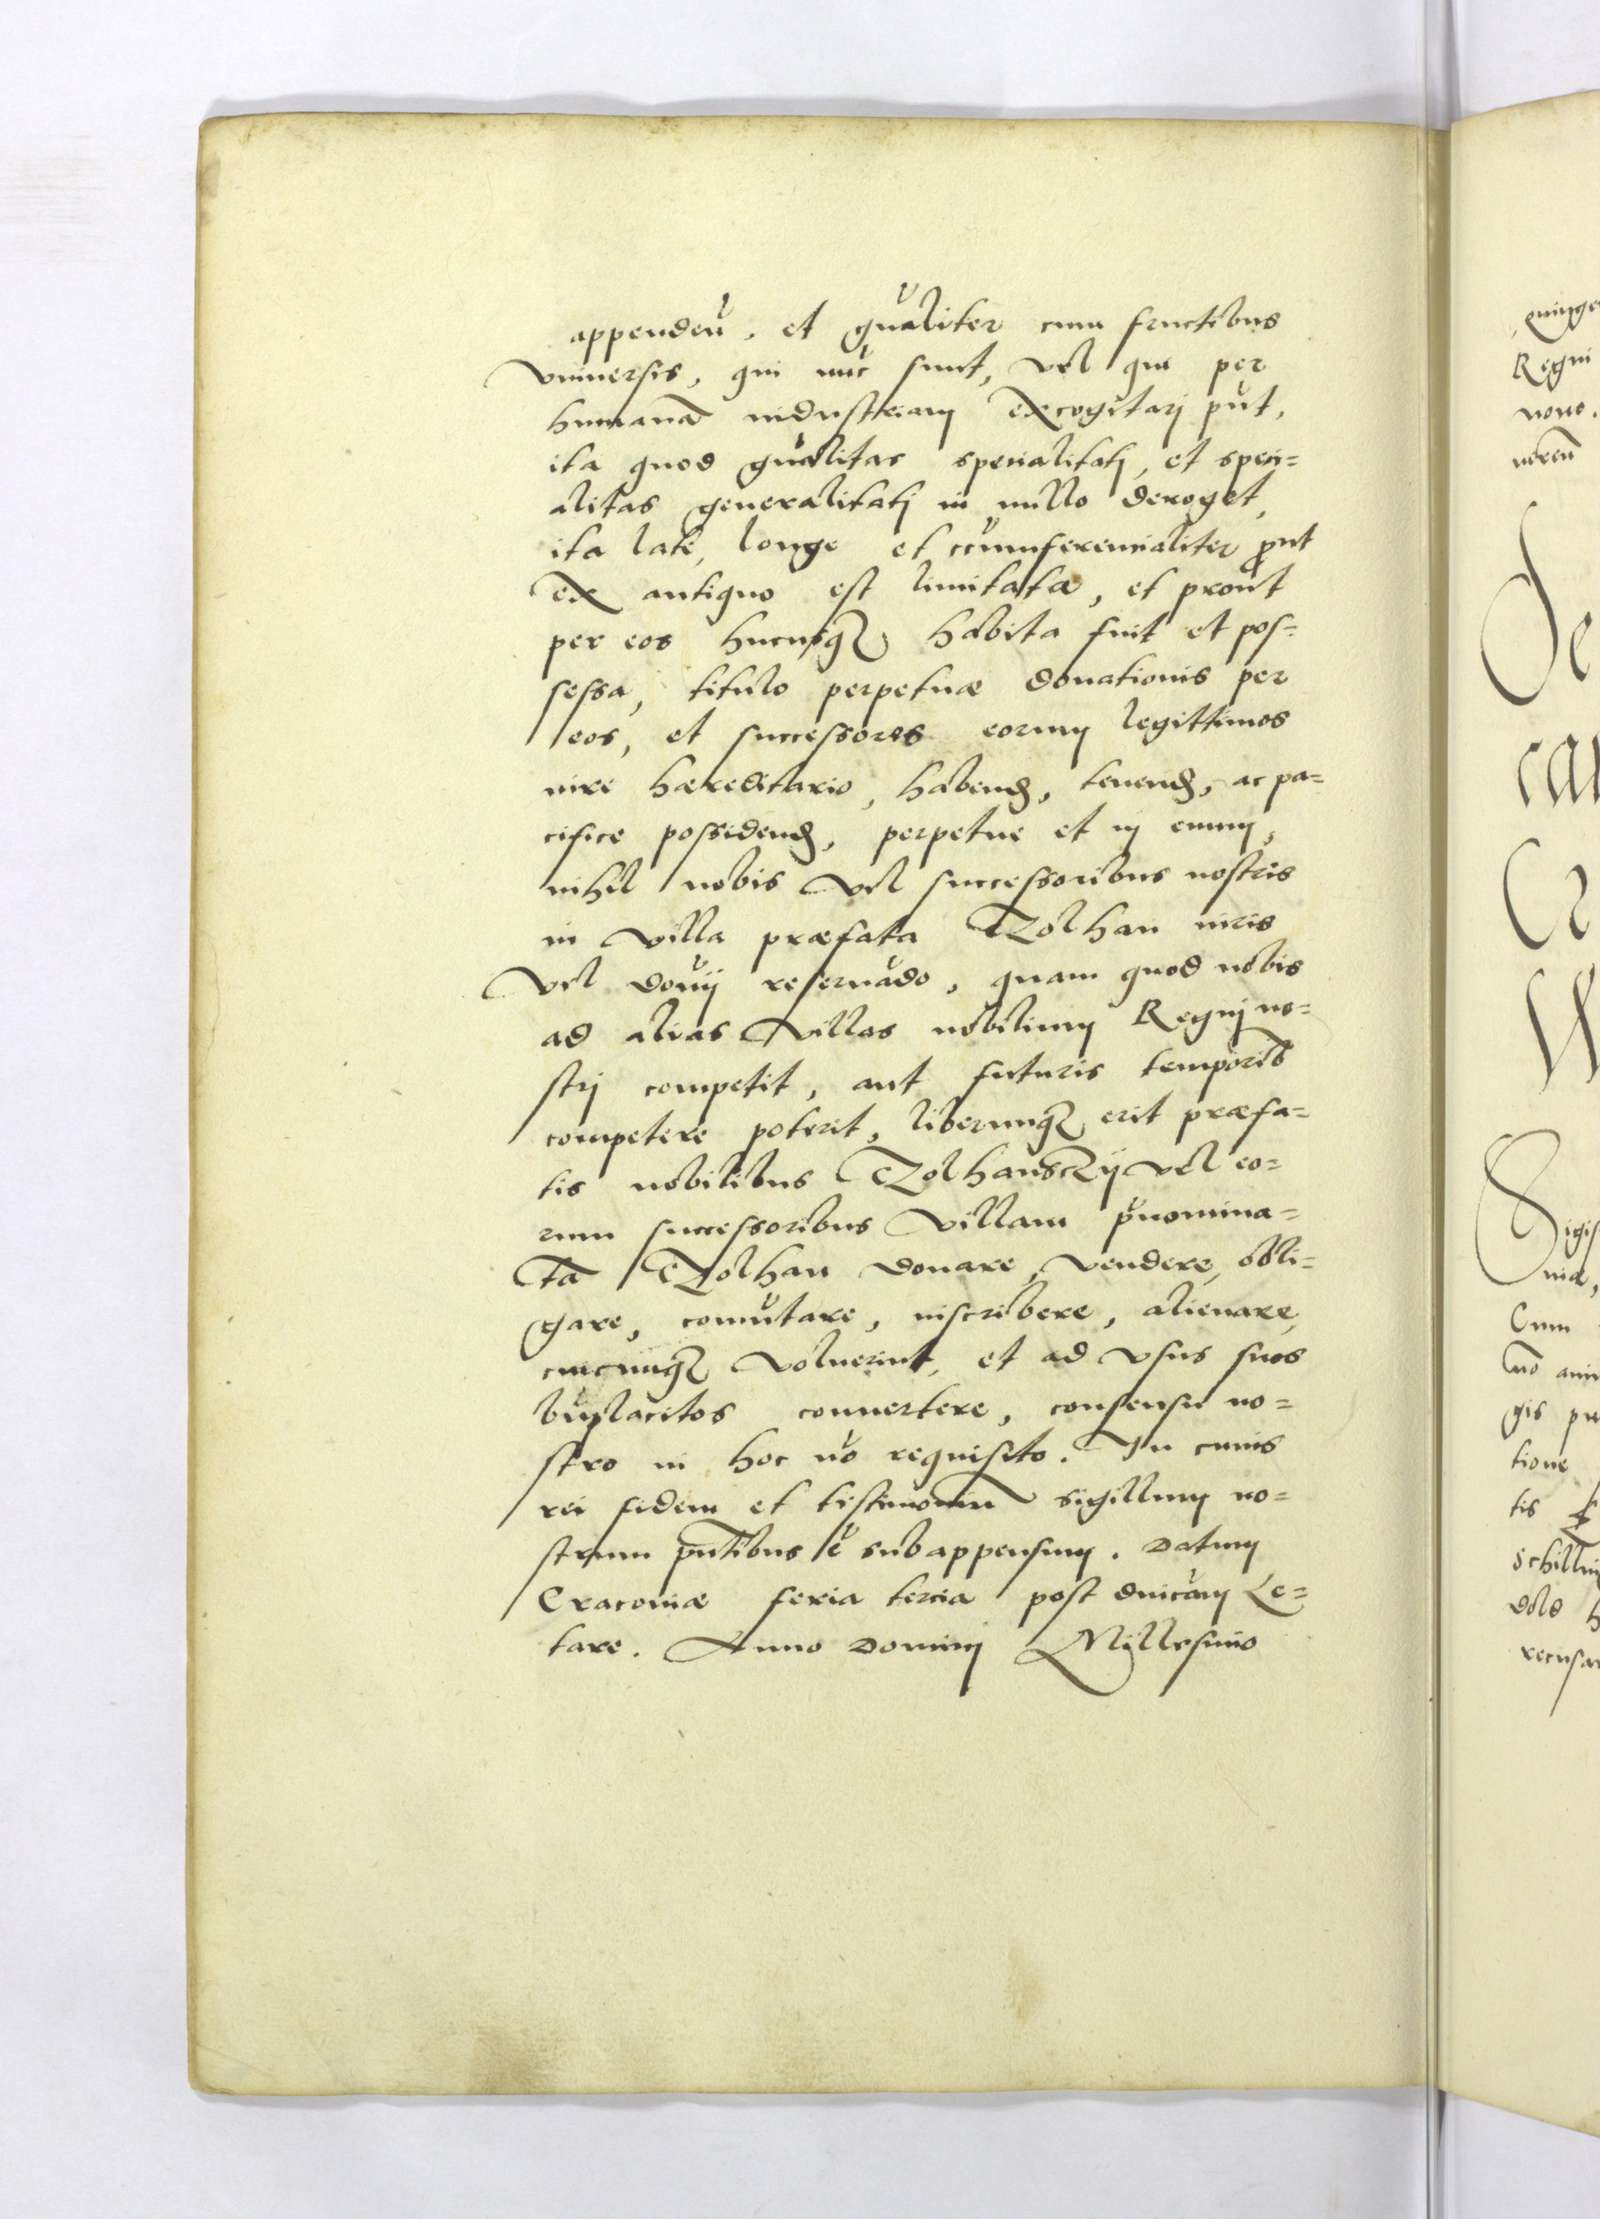 appendeñ. et gñaliter cum fructibus
vniuersis, qui nūc sunt, vel qui per
humanā industriam excogitari pñt,
ita quod gñalitas specialitatj, et speci=
alitas generalitatj in nullo deroget,
ita late, longe et ccumferencialiter ꝓut
ex antiquo est limitata, et prout
per eos hucusqꝫ habita fuit et pos=
sessa, titulo perpetuæ donationis per
eos, et successores eorum legittimos
iure hæreditario, habenꝺ, tenenꝺ, ac pa=
cifice possidenꝺ, perpetue et in euum,
nihil nobis vel successoribus nostris
in villa præfata Czolhan iuris
vel donij reseruādo, quam quod nobis
ad alias villas nobilium Regnj no=
strj competit, aut futuris temporib
competere poterit, liberumqꝫ erit præfa=
tis nobilibus Czolhansczij vel eo=
rum successoribus villam p̄nomina=
tā Czolhan donare, vendere, obli=
gare, comūtare, inscribere, alienare,
cuicumqꝫ voluerint, et ad vsus suos
bn̄placitos conuertere, consensu no=
stro in hoc nō requisito. In cuius
rei fidem et testimoniū sigillum no=
strum pn̄tibus ē subappensum. Datum
Cracouiæ feria tercia post dnīcam Le=
tare. Anno Dominj Millesimo
quinge
Regni
nono.
Sigis
Cum
gis
tione
tis
Schillin
recusa